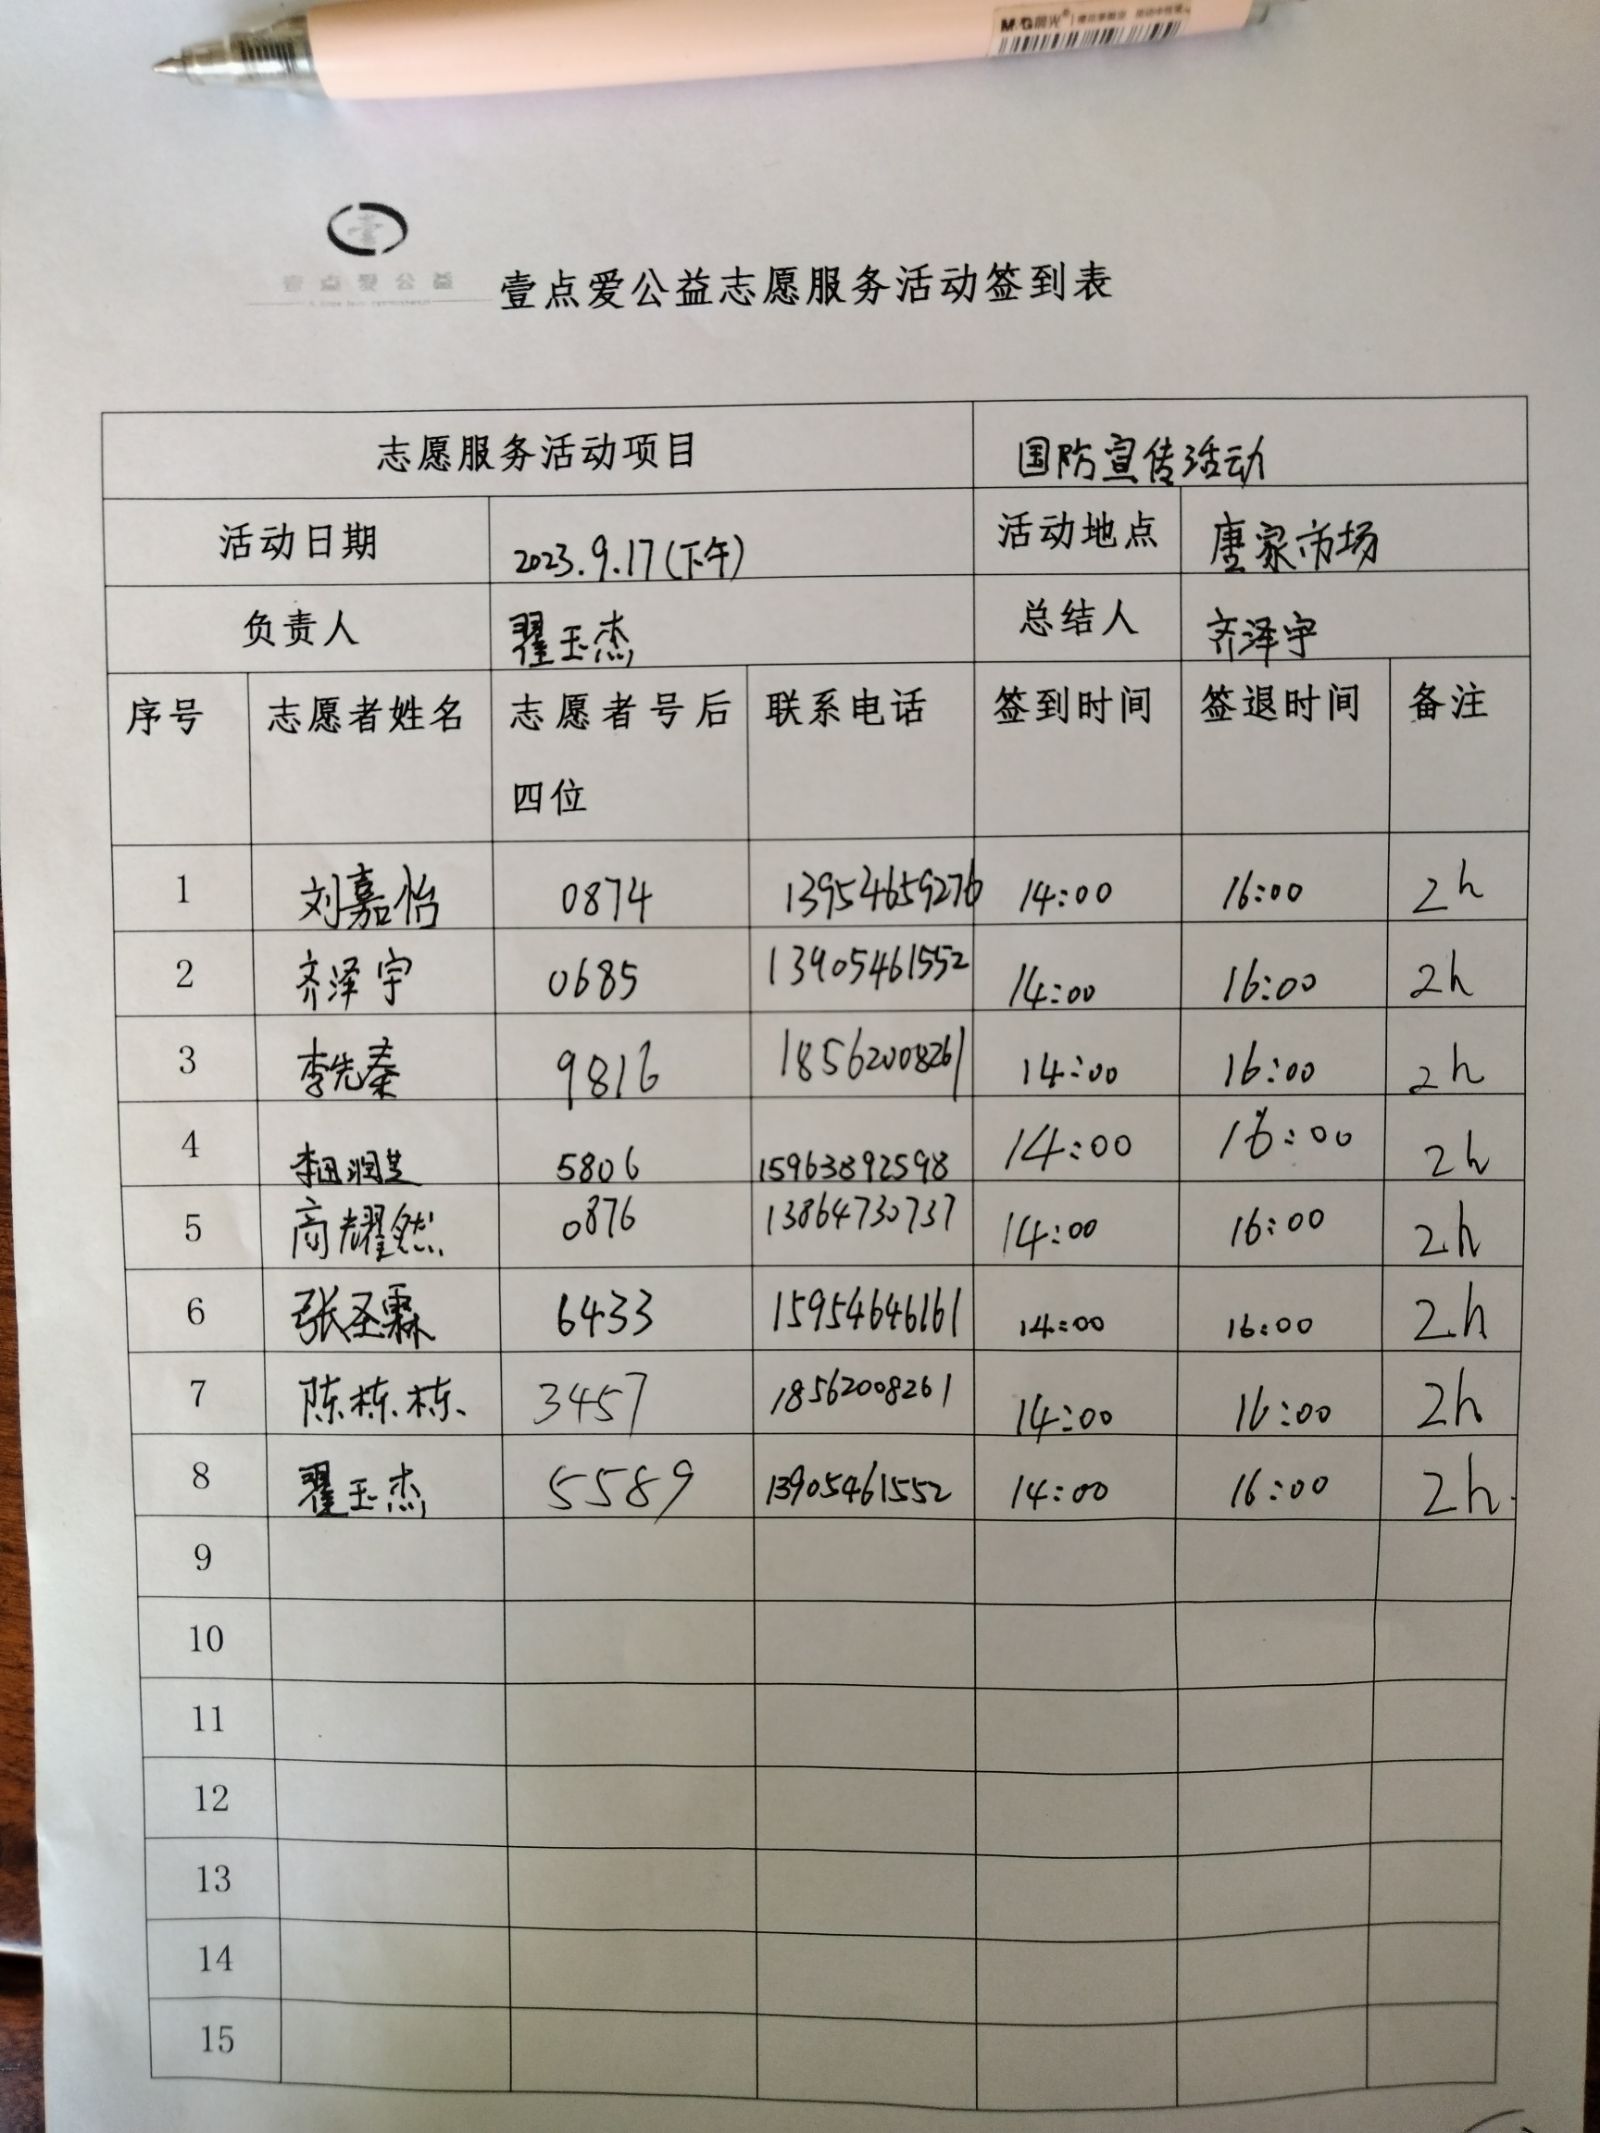 M&G晨光
壹
壹点爱公益
壹点爱公益志愿服务活动签到表
志愿服务活动项目 国防宣传活动
活动日期 2023.9.17(下午) 活动地点 唐家市场
负责人 翟玉杰 总结人 齐泽宇
序号 志愿者姓名 志愿者号后 联系电话 签到时间 签退时间 备注
四位
1 刘嘉怡 0874 13954659276 14:00 16:00 2h
2 齐泽宇 0685 13905461552 14:00 16:00 2h
3 李先秦 9816 18562008261 14:00 16:00 2h
4 李润芝 5806 15963892598 14:00 16:00 2h
5 商耀然 0876 13864730737 14:00 16:00 2h
6 张圣霖 6433 15954646161 14:00 16:00 2h
7 陈栋栋 3457 18562008261 14:00 16:00 2h
8 翟玉杰 5589 13905461552 14:00 16:00 2h
9
10
11
12
13
14
15